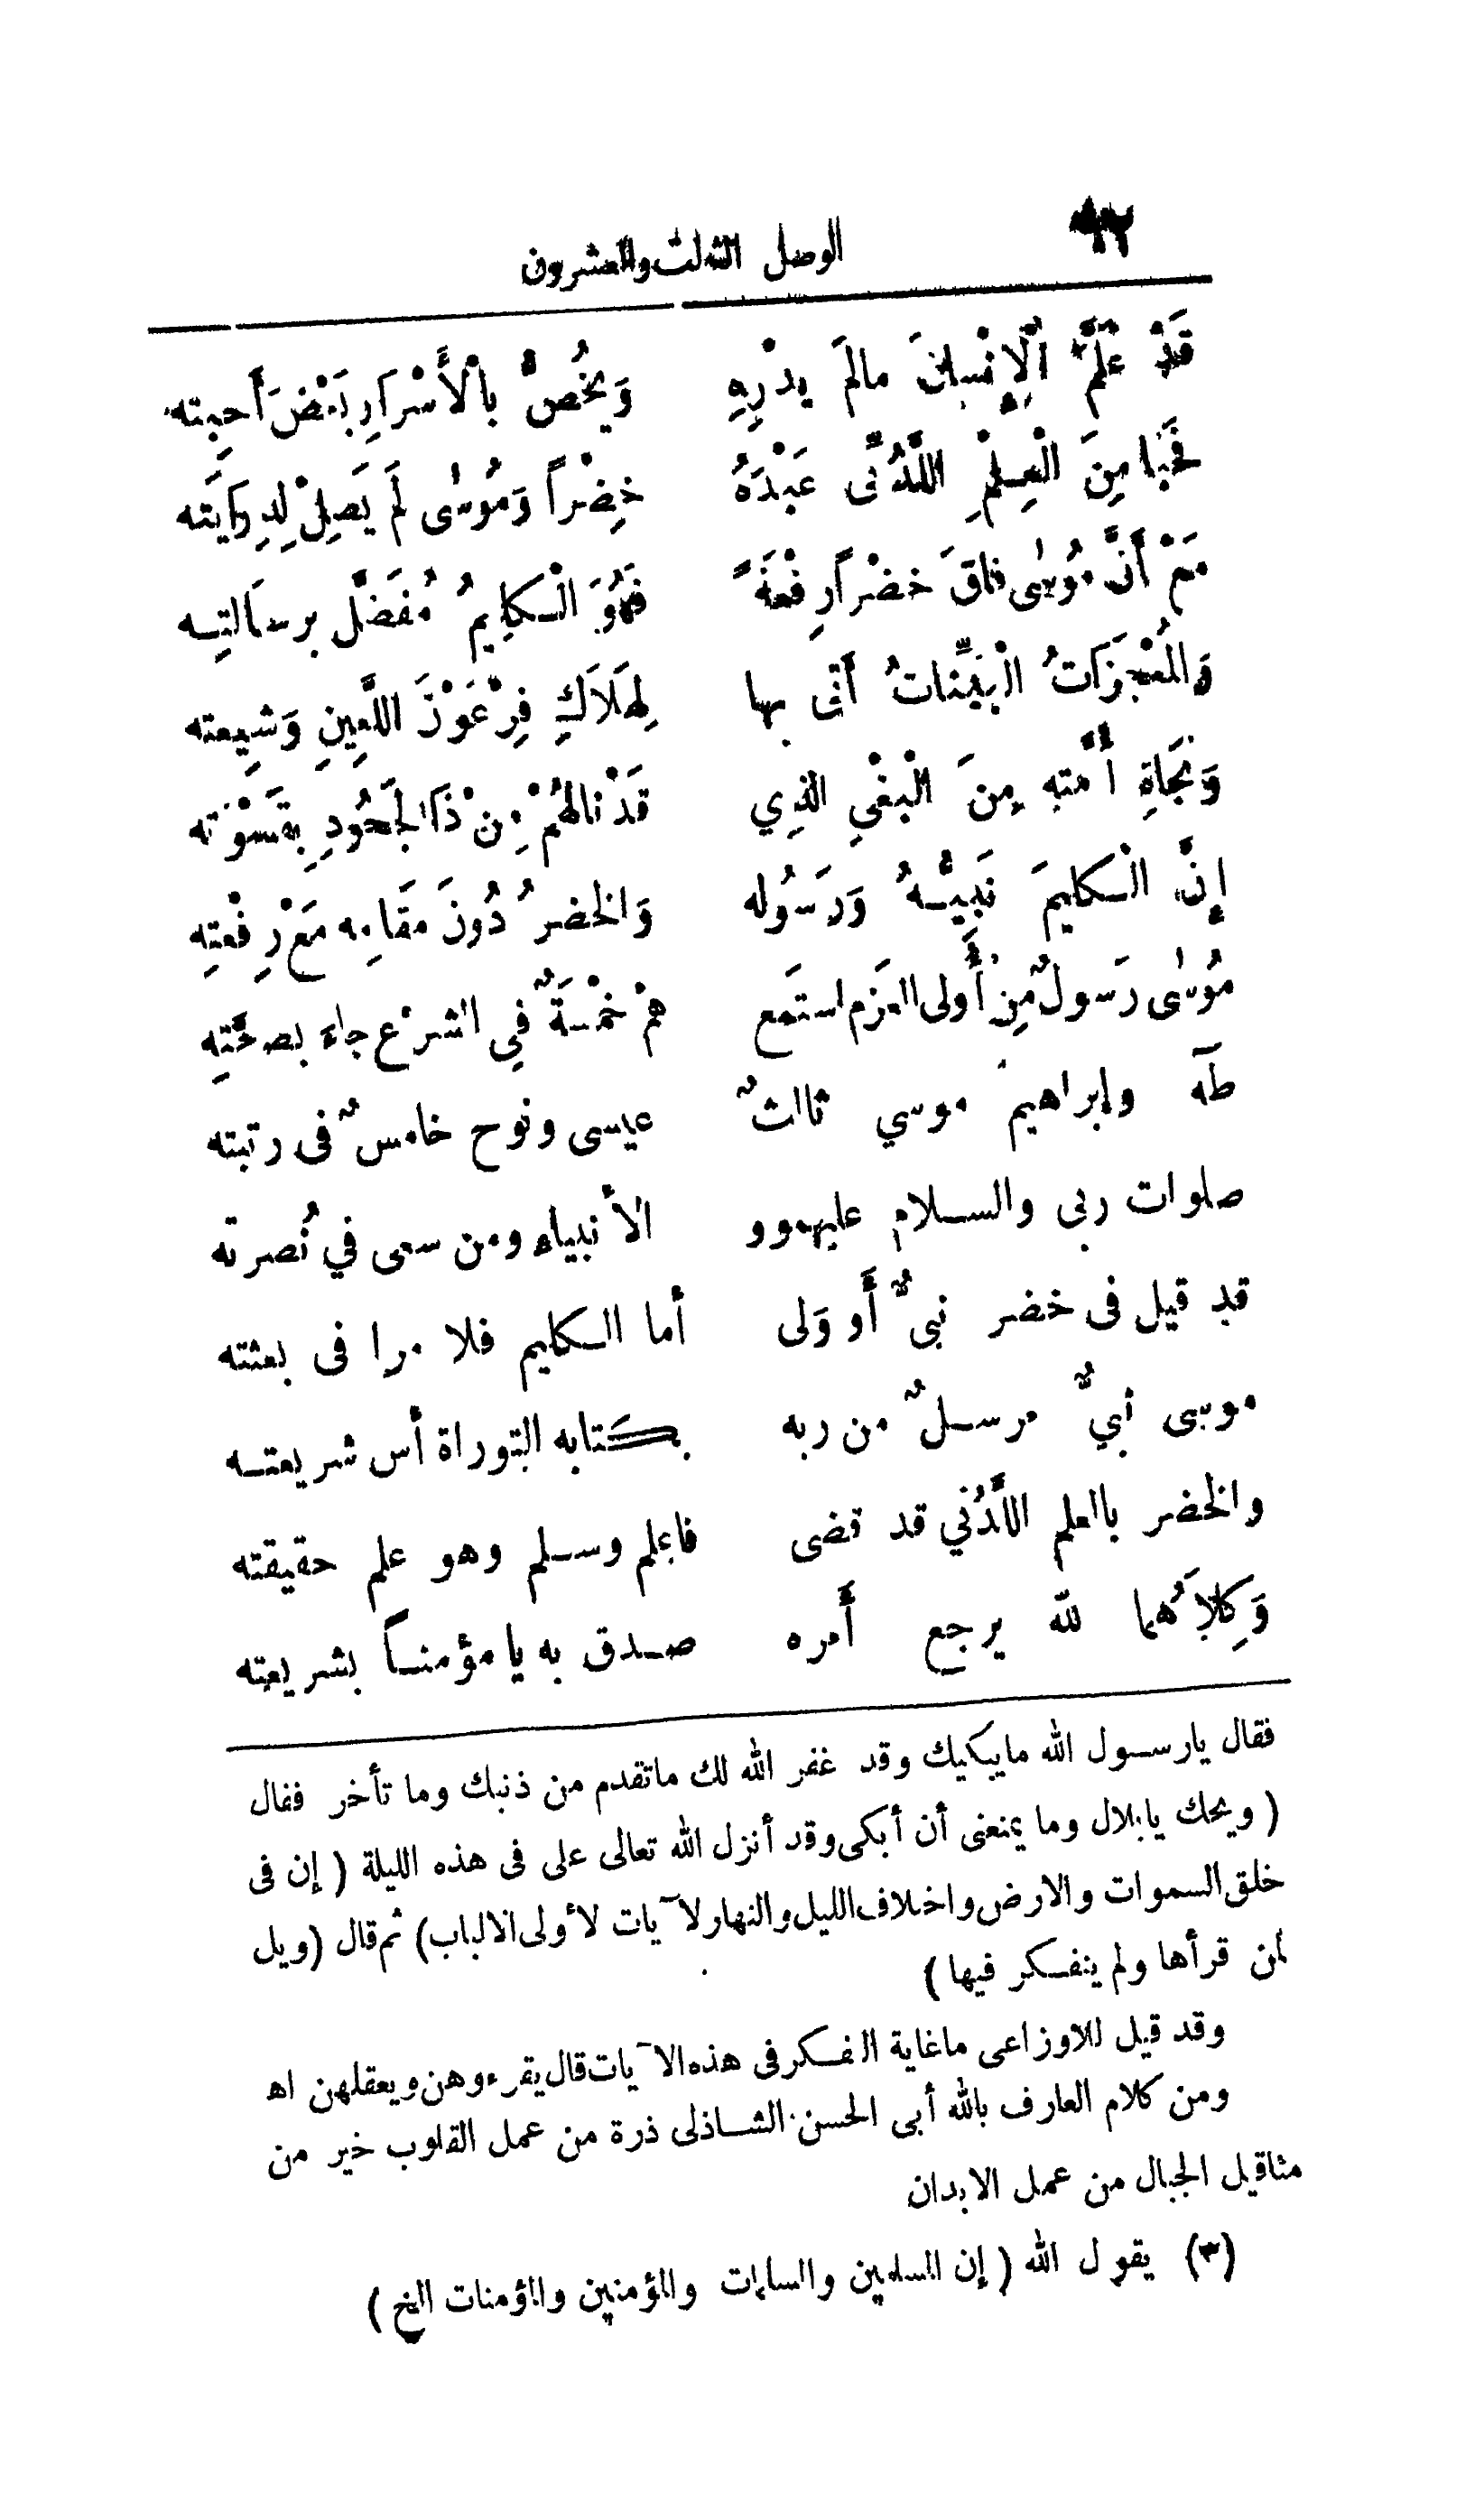 الوصل الثالث والعشرون
قَدْ عَلَّمَ اْلْإِنْسانَ مالَمَ يدْرِهِ وَيَخُصُّ بِالْأَسْرَارِ بَعْضَ أَحِبته
فَحَبَا مِنَ الْعِلْمِ اللَّدُنِّى عَبْدَهُ خِضْراً وَمُوسٰى لَمَ يَصِلْ لِدِرَايَته
مَعْ أَنَّ مُوسٰى فاقَ خضْراً رِفْعَةً فَهُوَ الْكلِيمُ مُفَضَّل برسَالتِه
وَالمُعْجِزَاتُ الْبَيِّناتُ أَتَى بها لِهَلَاَكِ فِرْعَوْنَ اللَّعِينِ وَشِيعته
وَنَجَاةِ أُمَّتِهِ مِنَ الْبَغْىِ الذِي قَدْ نالَهُمْ مِنْ ذَا الجَحُودِ بِقَسْوَته
إِنَّ الْكليمَ نَبِيُّهُ وَرَسُوله وَالخضرُ دُونَ مَقَامِه مَعْ رِفْعتِه
مُوسٰى رَسولٌ مِنْ أُولى العَزم استَمع هُمْ خَمْسَةٌ فِي الشرْع جاء بصحَّتِهِ
طَهَ وإبراهيمُ موسي ثالثٌ عيسى ونوح خامسٌ فى رتبته
صلوات ربى والسلام عليهمو و الأنبياء ومن سعى في نُصرته
قد قيل فى خضر نبىٌّ أَو وَلى أما الكليم فلا مرا فى بعثته
موسى نبيٌّ مرسلٌ من ربه بكَتابه التوراة أس شريعته
والخضر بالعلم اللَّدُنِّي قد قضى فاعلم وسلم وهو علم حقيقته
وَكِلاَهُما لله يرجع أَمره صدق به يا مؤمناً بشريعته
فقال يارسول الله مايبكيك وقد غفر الله لك ماتقدم من ذنبك وما تأخر فقال
( ويحك يابلال وما يمنعنى أن أبكى وقد أنزل الله تعالى على فى هذه الليلة ( إن فى
خلق السموات والارض واختلاف الليل والنهار لآيات لأولى الالباب) ثم قال (ويل
لمن قرأها ولم يتفكر فيها )
وقد قيل للاوزاعى ماغاية الفكر فى هذه الآيات قال يقرءوهن ويعقلهن اهـ
ومن كلام العارف بالله أبى الحسن الشاذلى ذرة من عمل القلوب خير من
مثاقيل الجبال من عمل الابدان
(٣) يقول الله ( إن المسلمين والمسلمات والمؤمنين والمؤمنات الخ )